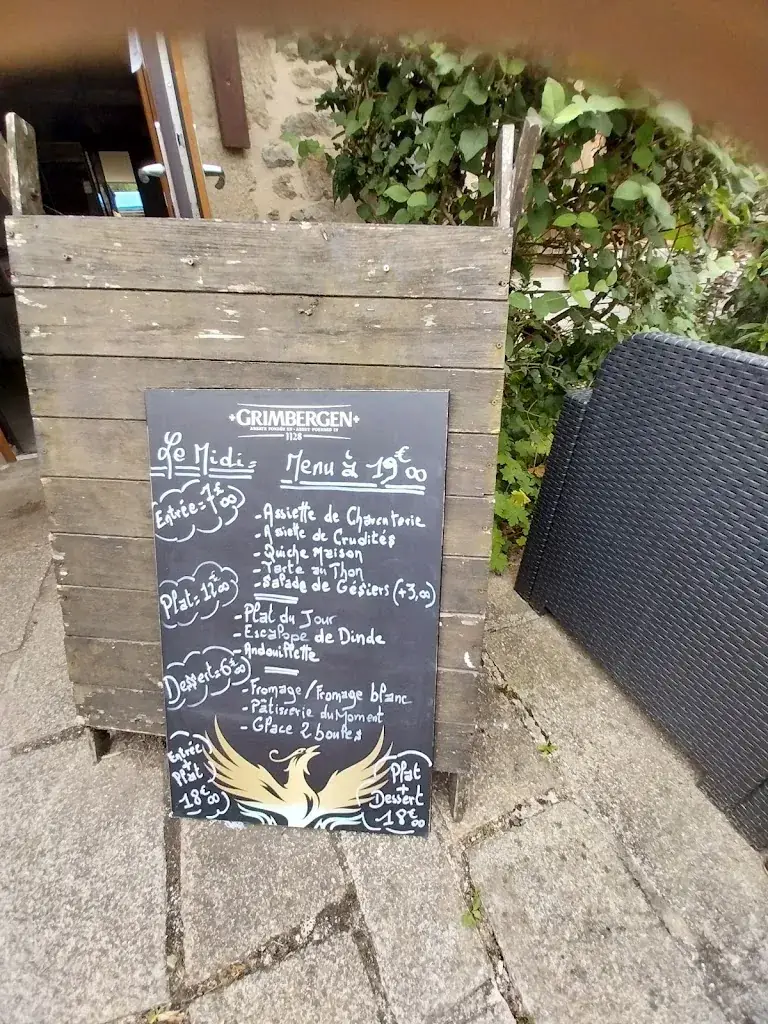 GRIMBERGEN
1128
Le Midi
Menu à 19€00
Entrée = 7€00
- Assiette de Charcuterie
- Assiette de Crudités
- Quiche Maison
- Tarte au Thon
- Salade de Gésiers (+3,00)
Plat = 12€00
- Plat du Jour
- Escalope de Dinde
- Andouillette
Dessert = 6€00
- Fromage / Fromage blanc
- Pâtisserie du Moment
- Glace 2 boules
Entrée
+
Plat
18€00
Plat
+
Dessert
18€00